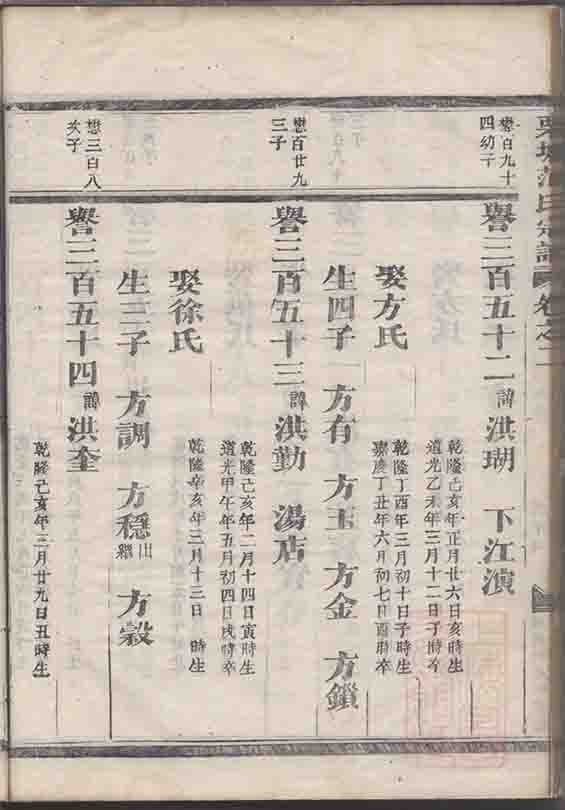 栗城范氏宗譜 卷之二
懋百九十
四幼子
譽三百五十二 諱洪瑚 下江演
乾隆己亥年正月廿六日亥時生
道光乙未年三月十二日子時卒
娶方氏
乾隆丁酉年三月初十日子時生
嘉慶丁丑年六月初七日酉時卒
生四子 方有 方玉 方金 方鎖
懋百廿九
三子
譽三百五十三 諱洪勤 湯店
乾隆己亥年二月十四日寅時生
道光甲午年五月初四日戌時卒
娶徐氏
乾隆辛亥年三月十三日 時生
生三子 方調 方穩出繼 方穀
懋三百八
次子
譽三百五十四 諱洪奎
乾隆己亥年三月廿九日丑時生